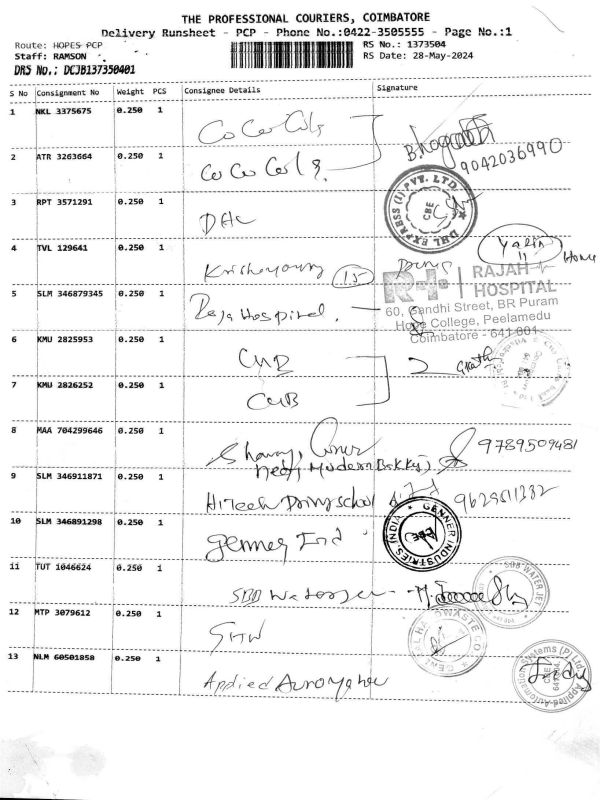 THE PROFESSIONAL COURIERS, COIMBATORE
Delivery Runsheet - PCP - Phone No.:0422-3505555 - Page No.:1
Route: HOPES PCP RS No.: 1373504
Staff: RAMSON RS Date: 28-May-2024
DRS No.: DCJB137350401
S No Consignment No Weight PCS Consignee Details Signature
1 NKL 3375675 0.250 1
2 ATR 3263664 0.250 1
9042036990
3 RPT 3571291 0.250 1
DHL EXPRESS (I) PVT. LTD CBE
4 TVL 129641 0.250 1
15 Home
RAJAH HOSPITAL
5 SLM 346879345 0.250 1 Raja Hospital.
60, Gandhi Street, BR Puram
Hope College, Peelamedu
Coimbatore - 641 001
6 KMU 2825953 0.250 1 CUB
7 KMU 2826252 0.250 1 CUB
8 MAA 704299646 0.250 1 9789509481
9 SLM 346911871 0.250 1 HiTech Driving school
10 SLM 346891298 0.250 1 Genner Ind
GENNER INDUSTRIES, INDIA CBE
11 TUT 1046624 0.250 1 Water Jet
SBB WATER JET
12 MTP 3079612 0.250 1
13 NLM 60501858 0.250 1 Applied Automation
Applied Automation Systems (P) Ltd. CBE